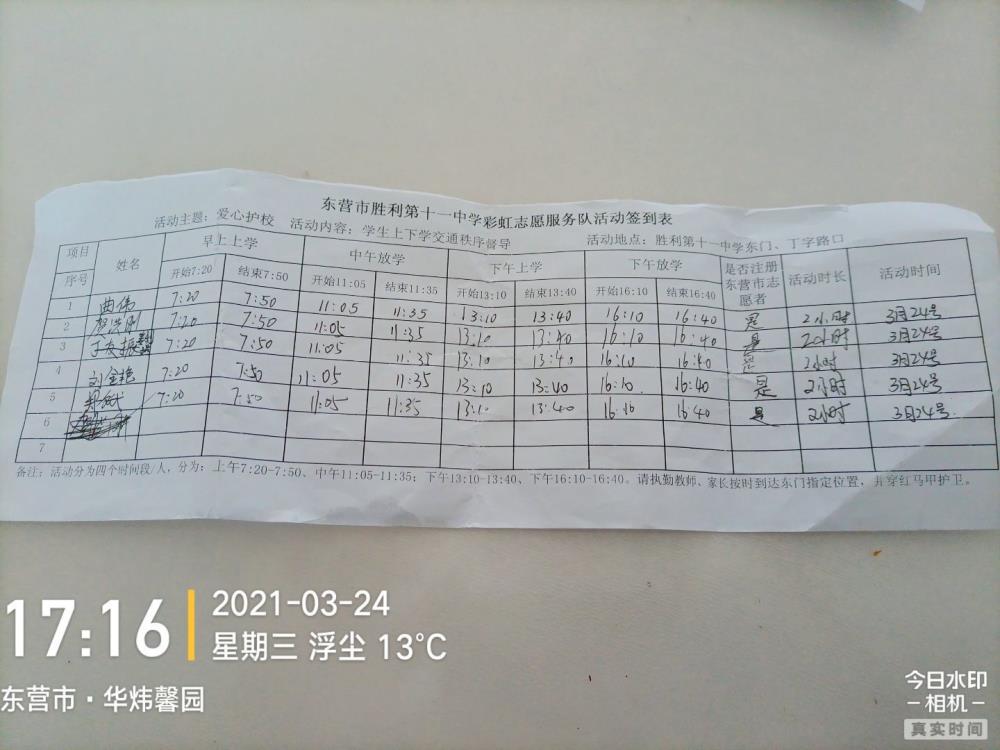 东营市胜利第十一中学彩虹志愿服务队活动签到表
活动主题：爱心护校 活动内容：学生上下学交通秩序督导 活动地点：胜利第十一中学东门、丁字路口
项目 姓名 早上上学 中午放学 下午上学 下午放学 是否注册东营市志愿者 活动时长 活动时间
序号 开始7:20 结束7:50 开始11:05 结束11:35 开始13:10 结束13:40 开始16:10 结束16:40
1 曲伟 7:20 7:50 11:05 11:35 13:10 13:40 16:10 16:40 是 2小时 3月24号
2 7:20 7:50 11:05 11:35 13:10 13:40 16:10 16:40 是 2小时 3月24号
3 7:20 7:50 11:05 11:35 13:10 13:40 16:10 16:40 是 2小时 3月24号
4 刘金艳 7:20 7:50 11:05 11:35 13:10 13:40 16:10 16:40 是 2小时 3月24号
5 7:20 7:50 11:05 11:35 13:10 13:40 16:10 16:40 是 2小时 3月24号
6
7
备注：活动分为四个时间段/人，分为：上午7:20-7:50、中午11:05-11:35；下午13:10-13:40、下午16:10-16:40。请执勤教师、家长按时到达东门指定位置，并穿红马甲护卫。
17:16
2021-03-24
星期三 浮尘 13°C
东营市·华炜馨园
今日水印
-相机-
真实时间